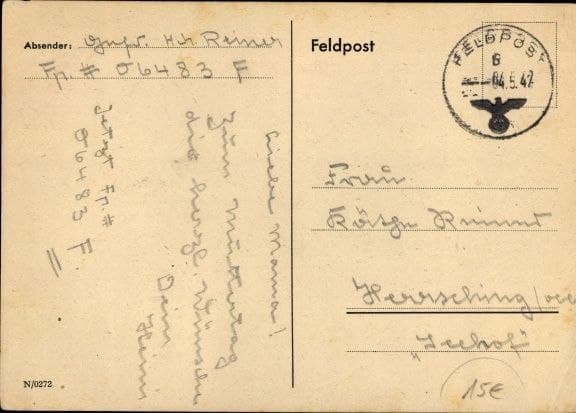 Absender: Gefr. H. Reiner
Fp. # 06483 F
Jetzt Fp. #
06483 F
Liebe Mama!
Zum Muttertag
die herzl. Wünsche
Dein
Heini
N/0272
Feldpost
FELDPOST
04.5.42
Frau
Käthe
Herrsching
"Seehof"
15€